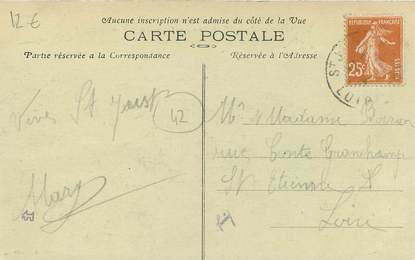 12 €
Aucune inscription n'est admise du côté de la Vue
CARTE POSTALE
Partie réservée a la Correspondance
Réservée à l'Adresse
REPUBLIQUE FRANÇAISE
25c
POSTES
ST J
LOIR
Vives St
42
Mary
Mr Madame
rue Conte
St Etienne
Loire